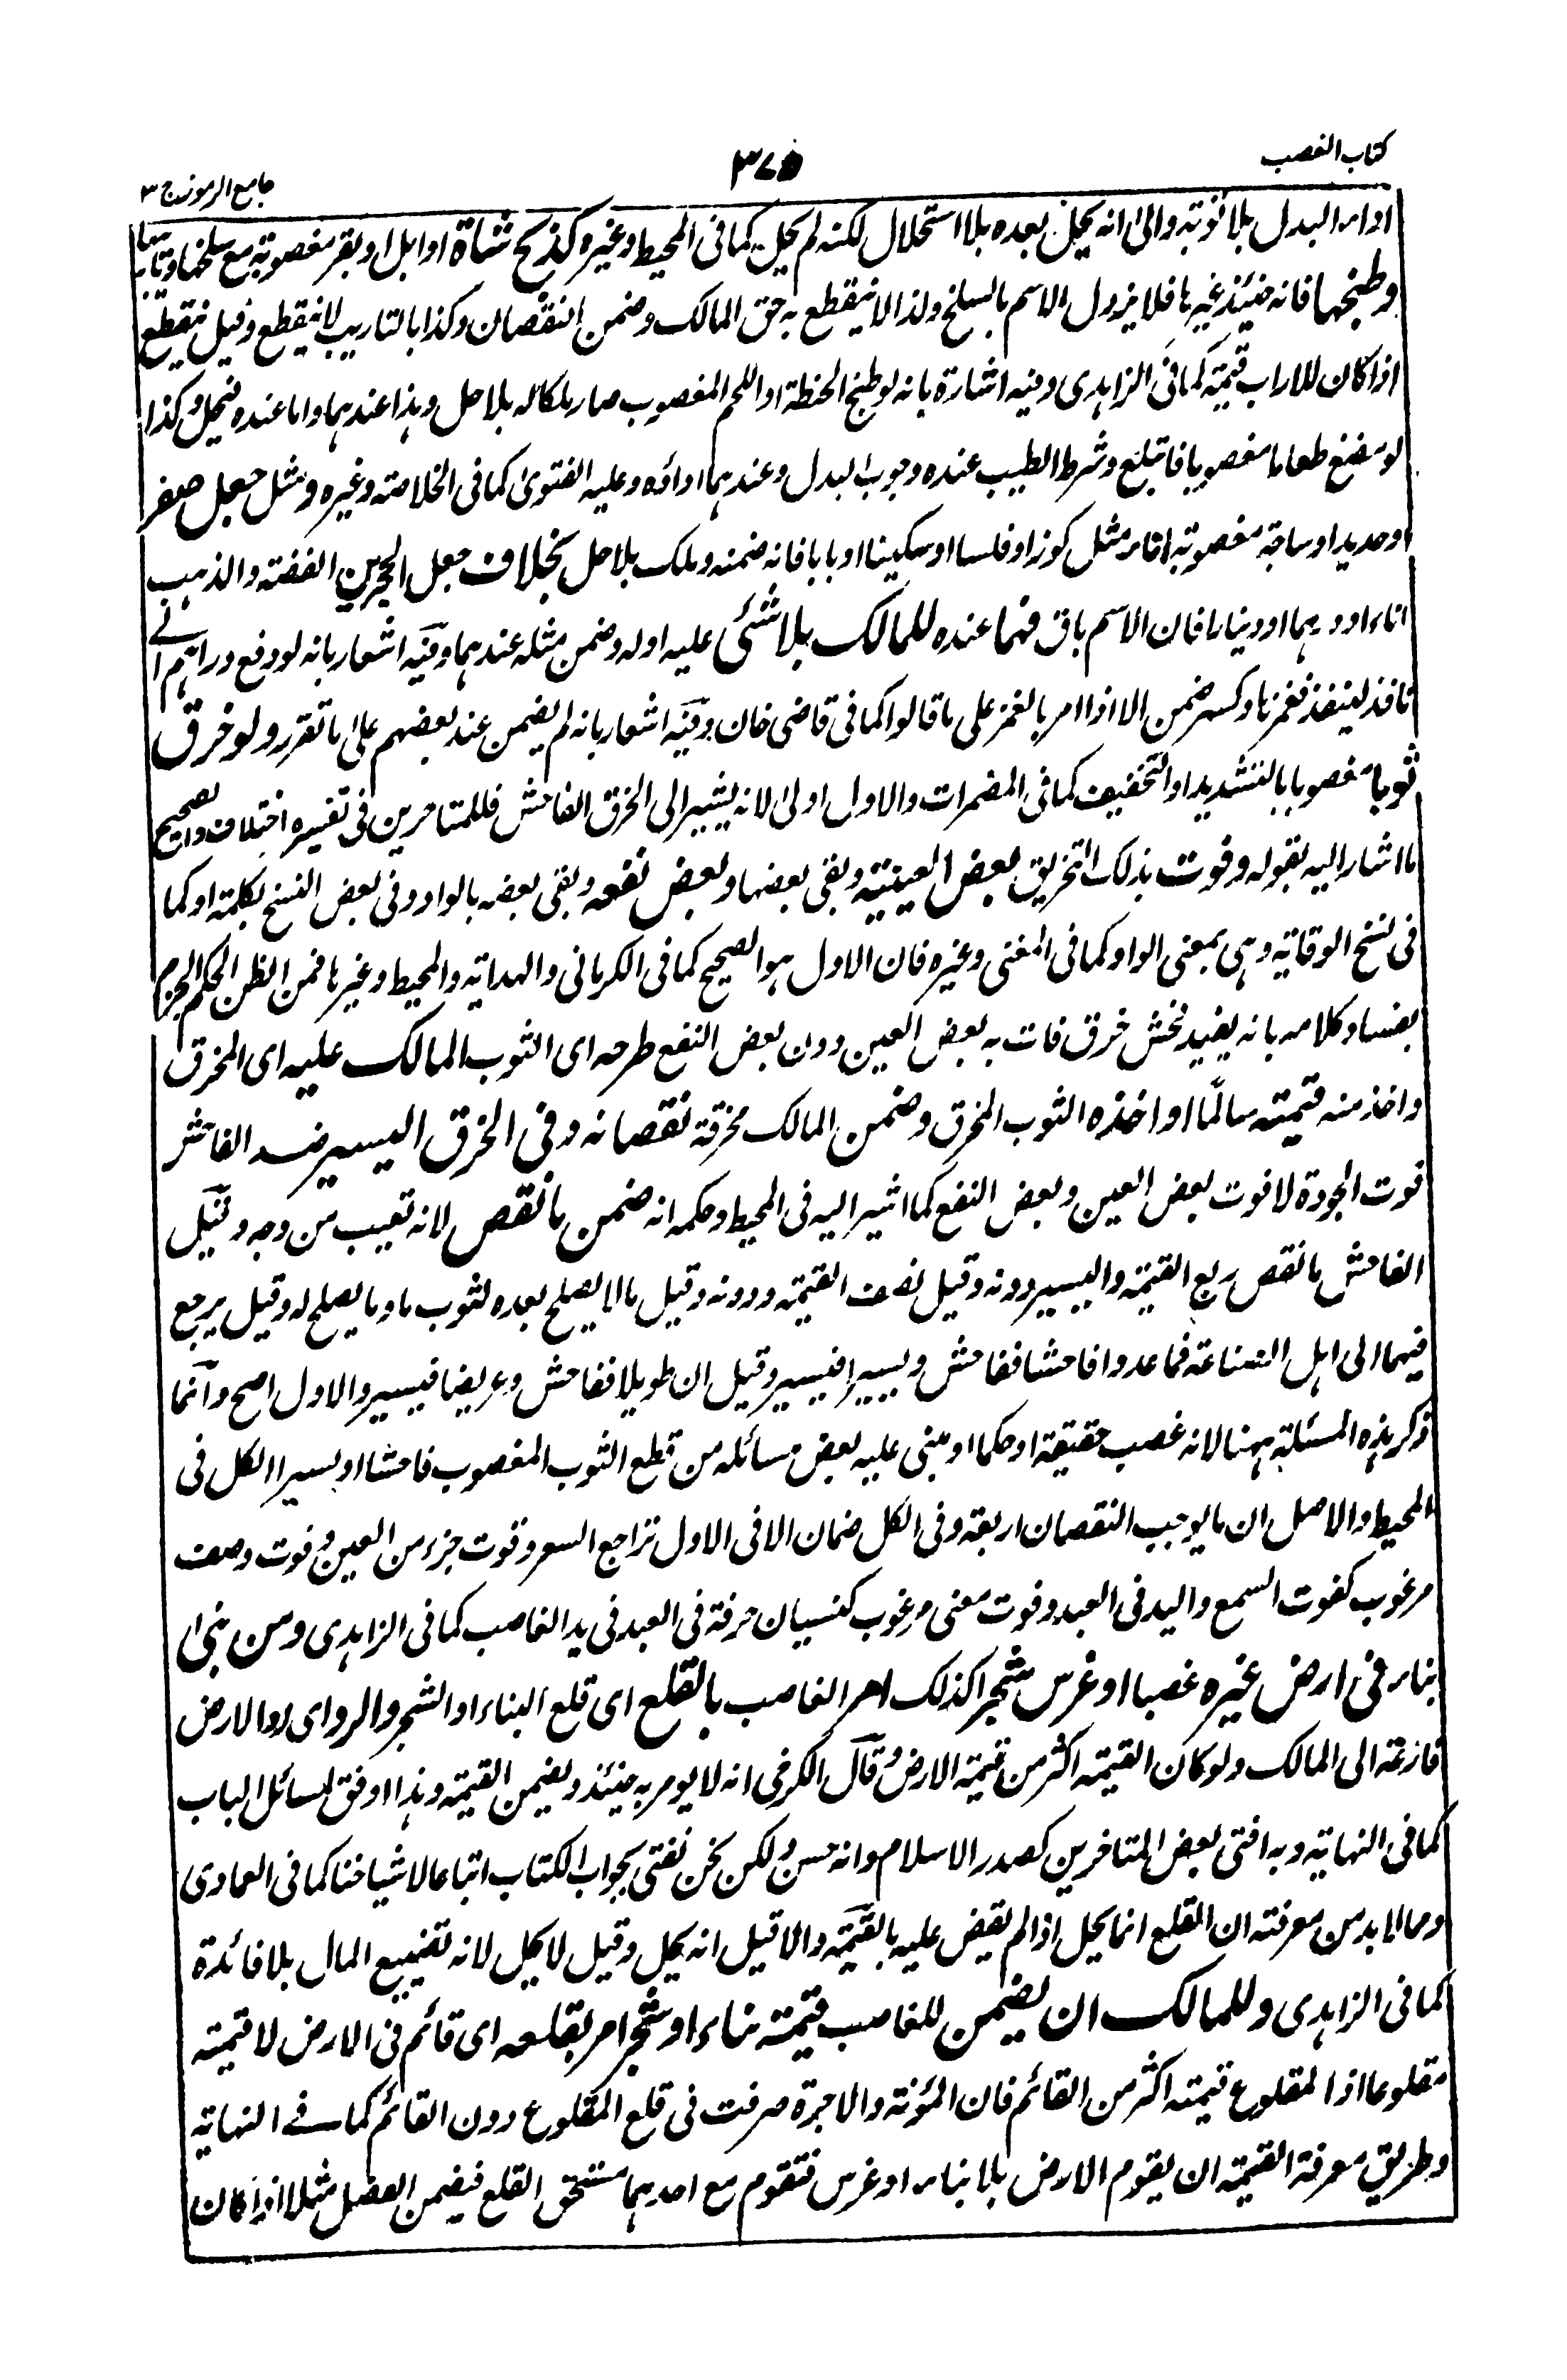 كتاب الغصب
٣٧٥
جامع الرموز ج ٣
اداء البدل بلا توبة والى انه يحل بعده بلا استحلال لكنه لم يحل كما فى المحيط وغيره كذبح شاة او ابل او بقر مغصوبة مع سلخها وتاريبها
وطبخها فانه حينئذ غيرها فلا يزول الاسم بالسلخ ولذا لا ينقطع به حق المالك وضمن النقصان وكذا بالتاريب لا ينقطع وقيل ينقطع
اذا كان للاراب قيمة كما فى الزاهدى وفيه اشارة بانه لو طبخ الحنطة او اللحم المغصوب صار ملكا له بلا حل وهذا عندهما واما عنده فيحل وكذا
لو مضغ طعاما مغصوبا فابتلع وشرط الطيب عنده وجوب البدل وعندهما اداؤه وعليه الفتوى كما فى الخلاصة وغيره ومثل جعل صفر
او حديد او ساجة مغصوبة اناء مثل كوز او فلسا او سكينا او بابا فانه ضمنه وملك بلا حل بخلاف جعل الحجرين الفضة والذهب
اناء او درهما او دينارا فان الاسم باق فهما عنده للمالك بلا شئى عليه اوله وضمن مثله عندهما وفيه اشعار بانه لو دفع دراهم الى
ناقد لينقد فغمزها وكسر ضمن الا اذا امر بالغمز على ما قالوا كما فى قاضى خان وفيه اشعار بانه لم يضمن عند بعضهم على ما تقرر ولو خرق
ثوبا مغصوبا بالتشديد او التخفيف كما فى المضمرات والاول اولى لانه يشير الى الخرق الفاحش فللمتاخرين فى تفسيره اختلاف والصحيح
ما اشار اليه بقوله وفوت بذلك التخريق بعض العينية وبقى بعضها وبعض نفعه وبقى بعضه بالواو وفى بعض النسخ بكلمة او كما
فى نسخ الوقاية وهى بمعنى الواو كما فى المغنى وغيره فان الاول هو الصحيح كما فى الكرمانى والهداية والمحيط وغيرها فمن الظن الحكم الجزم
بفساد كلامه بانه يفيد فحش خرق فات به بعض العين دون بعض النفع طرحه اى الثوب المالك عليه اى المخرق
واخذ منه قيمته سالما او اخذه الثوب المخرق وضمن المالك مخرقة نقصانه وفى الخرق اليسير ضد الفاحش
فوت الجودة لا فوت بعض العين وبعض النفع كما اشير اليه فى المحيط وحكمه انه ضمن ما نقص لانه تعيب من وجه وقيل
الفاحش ما نقص ربع القيمة واليسير دونه وقيل نصف القيمة ودونه وقيل ما لا يصلح بعده لثوب ما وما يصلح له وقيل يرجع
فيهما الى اهل الصناعة فما عدوا فاحشا ففاحش ويسيرا فيسير وقيل ان طويلا ففاحش وعريضا فيسير والاول اصح وانما
ذكر هذه المسئلة ههنا لانه غصب حقيقة او حكما او مبنى عليه بعض مسائله من قطع الثوب المغصوب فاحشا او يسيرا الكل فى
المحيط والاصل ان ما يوجب النقصان اربعة وفى الكل ضمان الا فى الاول تراجع السعر وفوت جزء من العين وفوت وصف
مرغوب كفوت السمع واليد فى العبد وفوت معنى مرغوب كنسيان حرفة فى العبد فى يد الغاصب كما فى الزاهدى ومن بنى
بناء فى ارض غيره غصبا او غرس شجرا كذلك امر الغاصب بالقلع اى قلع البناء او الشجر والرد اى رد الارض
فارغة الى المالك ولو كان القيمة اكثر من قيمة الارض وقال الكرخى انه لا يومر به حينئذ ويضمن القيمة وهذا اوفق لمسائل الباب
كما فى النهاية وبه افتى بعض المتاخرين كصدر الاسلام وانه حسن ولكن نحن نفتى بجواب الكتاب اتباعا لاشياخنا كما فى العمادى
ومما لا بد من معرفته ان القلع انما يحل اذا لم يقض عليه بالقيمة والا قيل انه يحل وقيل لا يحل لانه تضييع المال بلا فائدة
كما فى الزاهدى وللمالك ان يضمن للغاصب قيمة بناء او شجر امر بقلعه اى قائم فى الارض لا قيمته
مقلوعا اذ المقلوع قيمته اكثر من القائم فان المؤنة والاجرة صرفت فى قلع المقلوع دون القائم كما فى النهاية
وطريق معرفة القيمة ان يقوم الارض بلا بناء او غرس فتقوم مع احدهما مستحق القلع فيضمن الفضل مثلا اذا كان